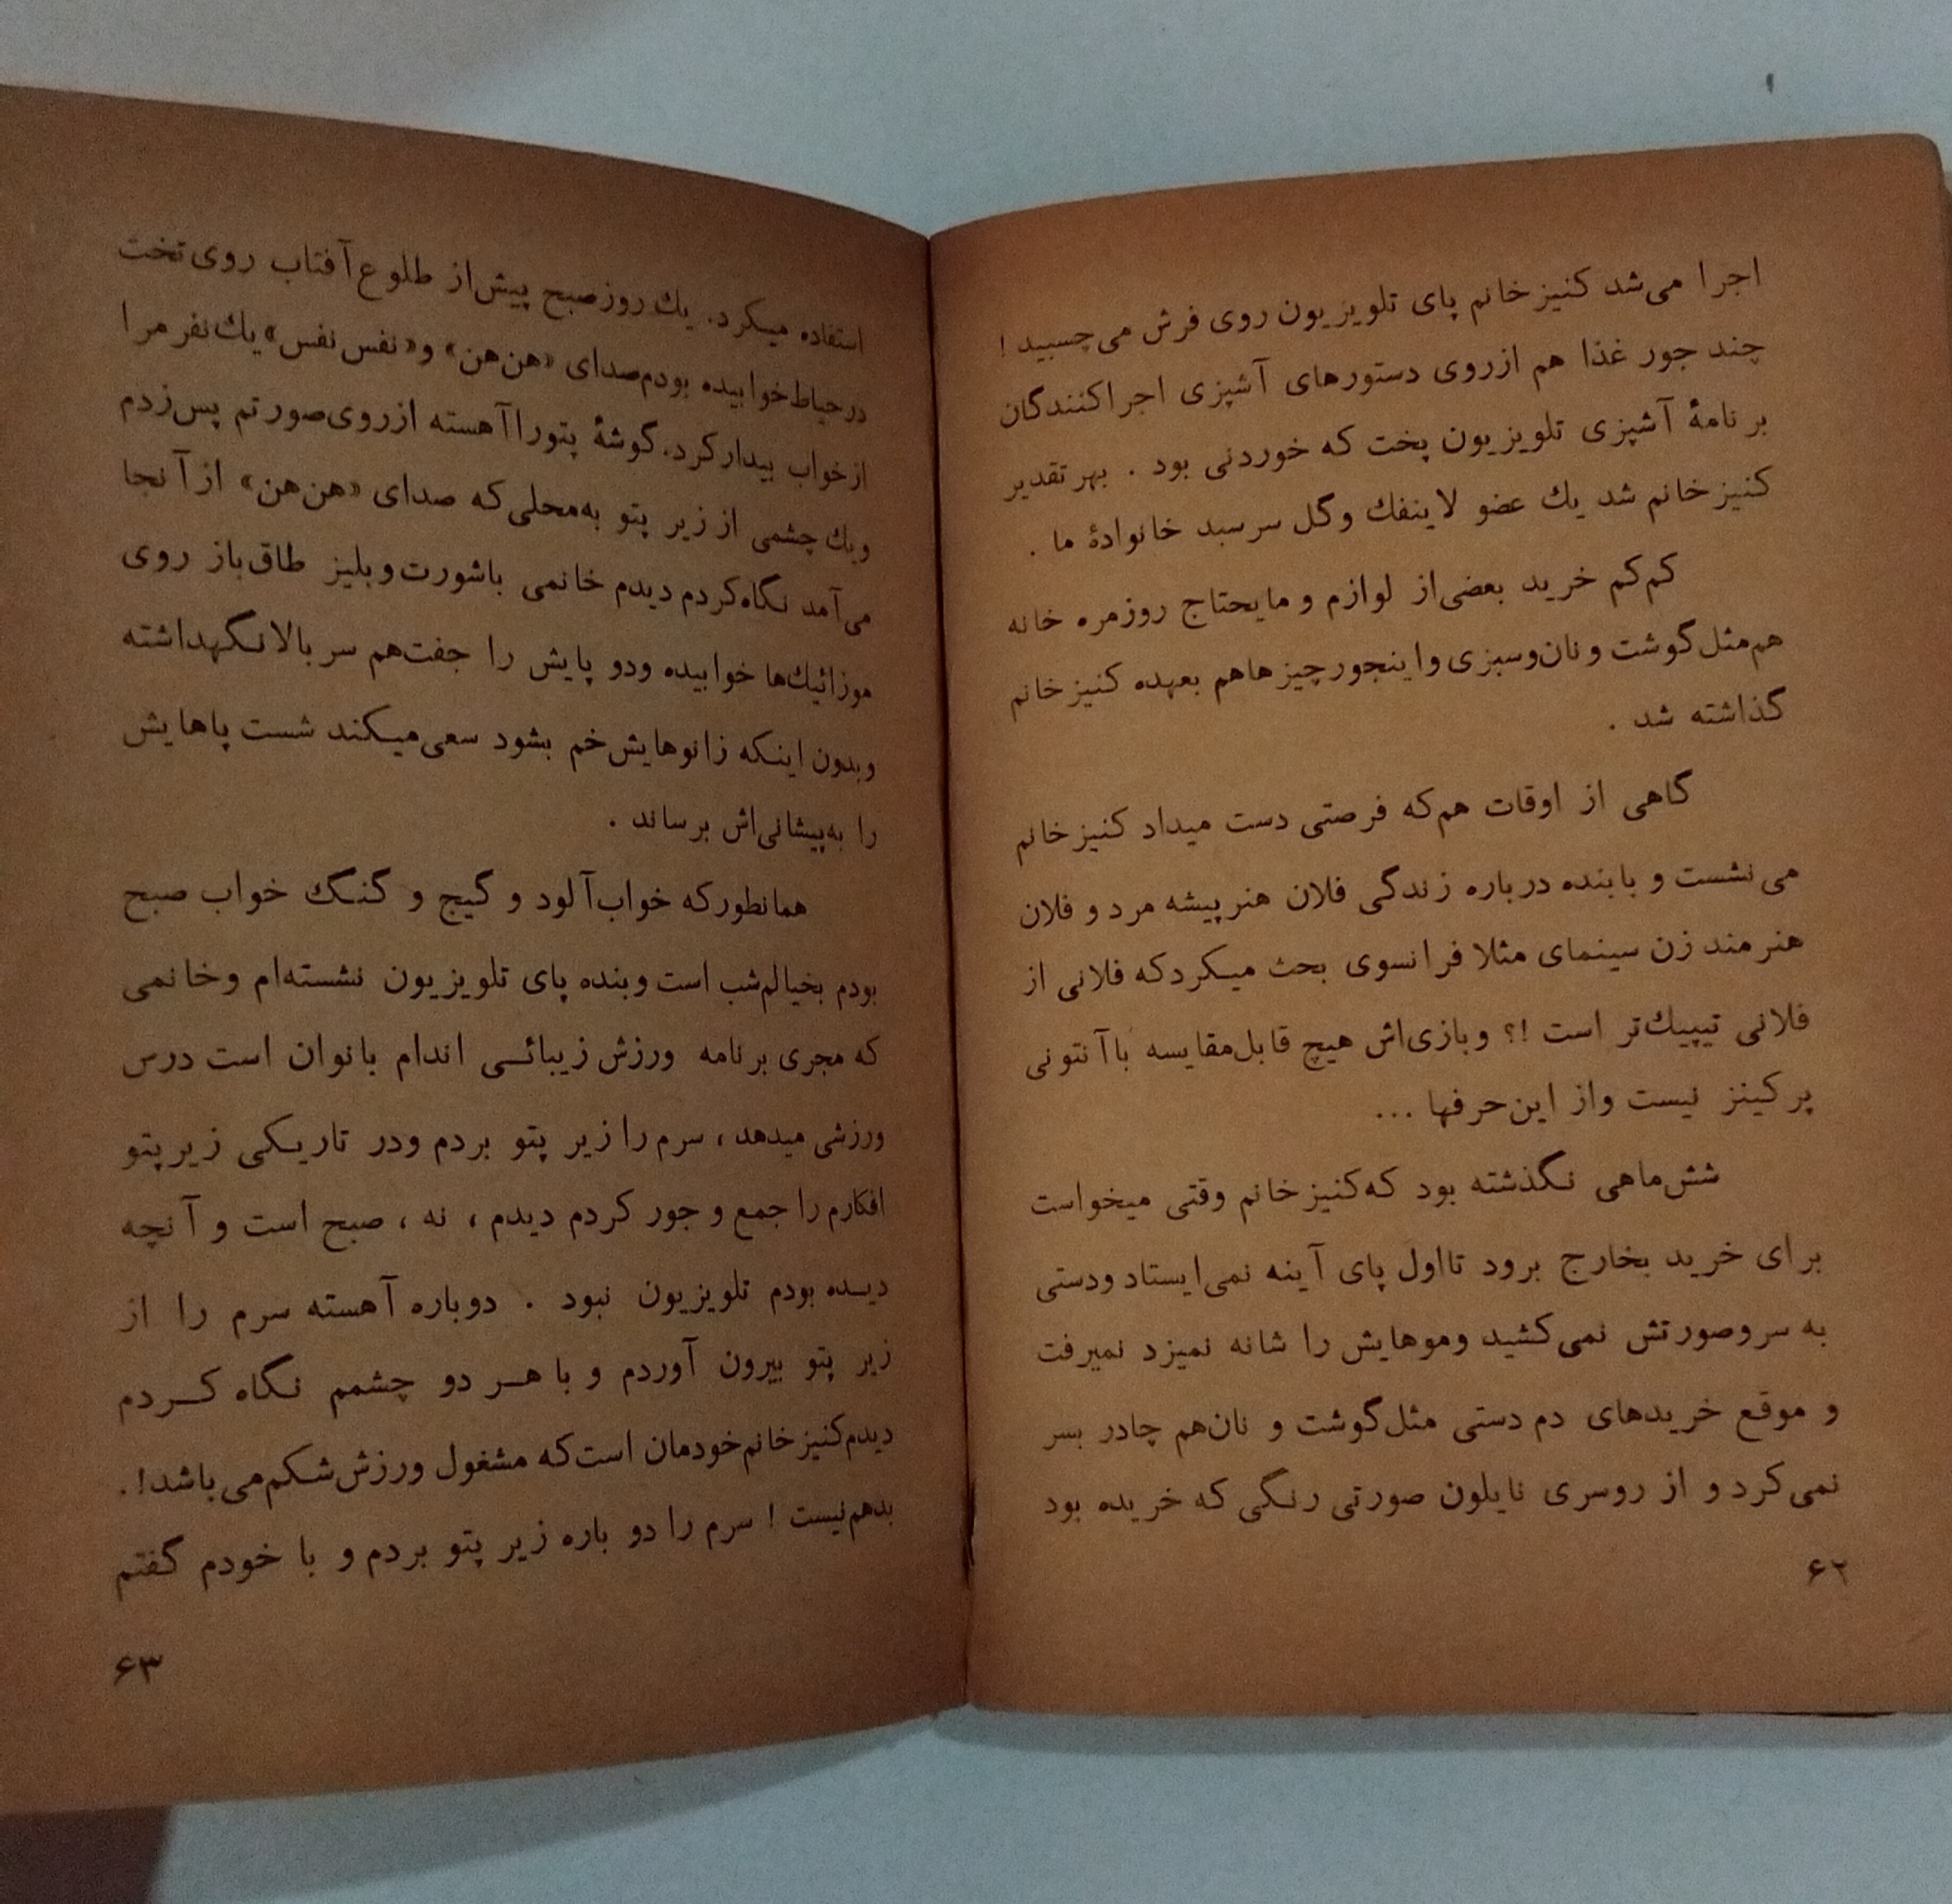 اجرا می‌شد کنیز خانم پای تلویزیون روی فرش می‌چسبید !
چند جور غذا هم ازروی دستورهای آشپزی اجراکنندگان
برنامهٔ آشپزی تلویزیون پخت که خوردنی بود . بهرتقدیر
کنیز خانم شد یك عضو لاینفك وگل سرسبد خانوادهٔ ما .
کم‌کم خرید بعضی‌از لوازم و مایحتاج روزمره خانه
هم‌مثل‌گوشت و نان‌وسبزی واینجورچیزهاهم بعهده کنیز خانم
گذاشته شد .
گاهی از اوقات هم‌که فرصتی دست میداد کنیز خانم
می‌نشست و بابنده درباره زندگی فلان هنرپیشه مرد و فلان
هنرمند زن سینمای مثلا فرانسوی بحث میکردکه فلانی از
فلانی تیپیك‌تر است !؟ وبازی‌اش هیچ قابل‌مقایسه باآنتونی
پرکینز نیست واز این‌حرفها ...
شش‌ماهی نگذشته بود که‌کنیز خانم وقتی میخواست
برای خرید بخارج برود تااول پای آینه نمی‌ایستاد ودستی
به سروصورتش نمی‌کشید وموهایش را شانه نمیزد نمیرفت
و موقع خریدهای دم دستی مثل‌گوشت و نان‌هم چادر بسر
نمی‌کرد و از روسری نایلون صورتی رنگی که خریده بود
۶۲
استفاده میکرد. یك روزصبح پیش‌از طلوع‌آفتاب روی‌تخت
درحیاط‌خوابیده بودم‌صدای «هن‌هن» و«نفس‌نفس»یك‌نفرمرا
ازخواب بیدارکرد.گوشهٔ پتوراآهسته ازروی‌صورتم پس‌زدم
ویك چشمی از زیر پتو به‌محلی‌که صدای «هن‌هن» ازآنجا
می‌آمد نگاه‌کردم دیدم خانمی باشورت‌وبلیز طاق‌باز روی
موزائیك‌ها خوابیده ودو پایش را جفت‌هم سربالانگهداشته
وبدون اینکه زانوهایش‌خم بشود سعی‌میکند شست پاهایش
را به‌پیشانی‌اش برساند .
همانطورکه خواب‌آلود و گیج و گنگ خواب صبح
بودم بخیالم‌شب است وبنده پای تلویزیون نشسته‌ام وخانمی
که مجری برنامه ورزش زیبائی اندام بانوان است درس
ورزشی میدهد ، سرم را زیر پتو بردم ودر تاریکی زیرپتو
افکارم را جمع و جور کردم دیدم ، نه ، صبح است و آنچه
دیده بودم تلویزیون نبود . دوباره آهسته سرم را از
زیر پتو بیرون آوردم و با هر دو چشمم نگاه کردم
دیدم‌کنیز خانم‌خودمان است‌که مشغول ورزش‌شکم‌می‌باشد! .
بدهم‌نیست ! سرم را دو باره زیر پتو بردم و با خودم گفتم
۶۳